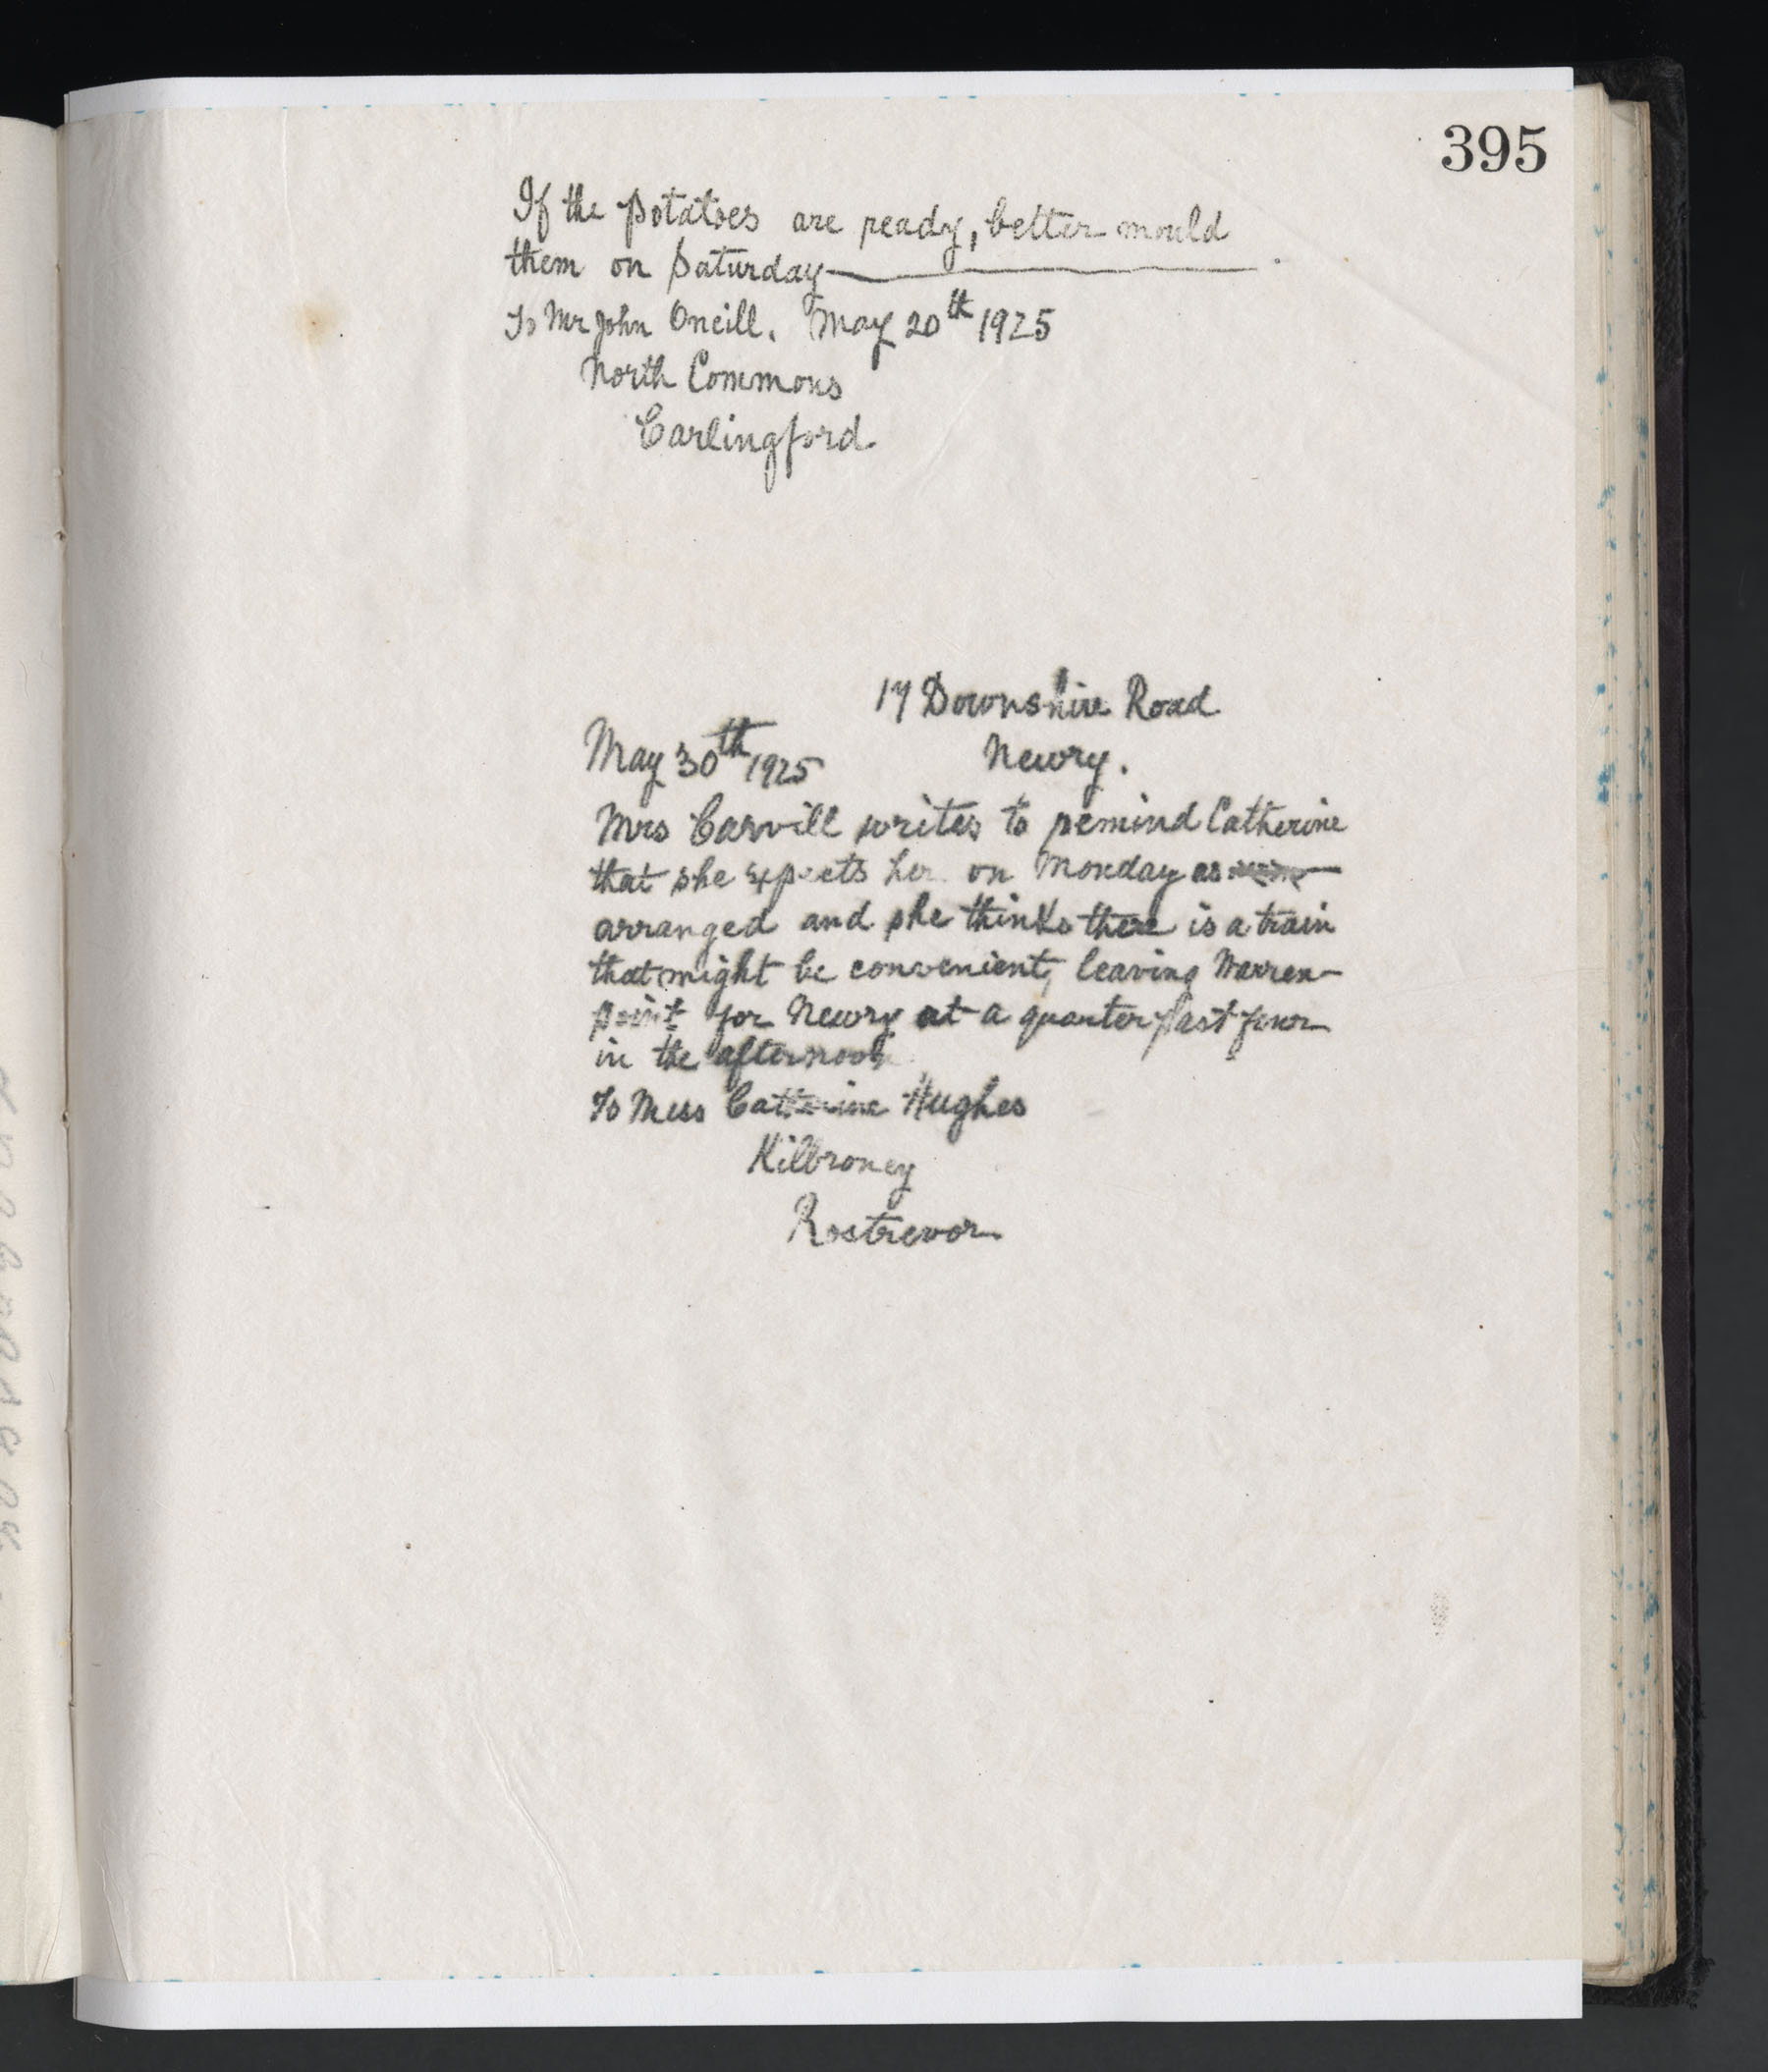 395
If the potatoes are ready, better mould
them on Saturday
To Mr John Oneill. May 20th 1925
North Commons
Carlingford
17 Downshire Road
May 30th 1925 Newry.
Mrs Carvill writes to remind Catherine
that she expects her on Monday as
arranged and she thinks there is a train
that might be convenient, leaving Warren-
point for Newry at a quarter past four
in the afternoon
To Miss Catherine Hughes
Kilbroney
Rostrevor